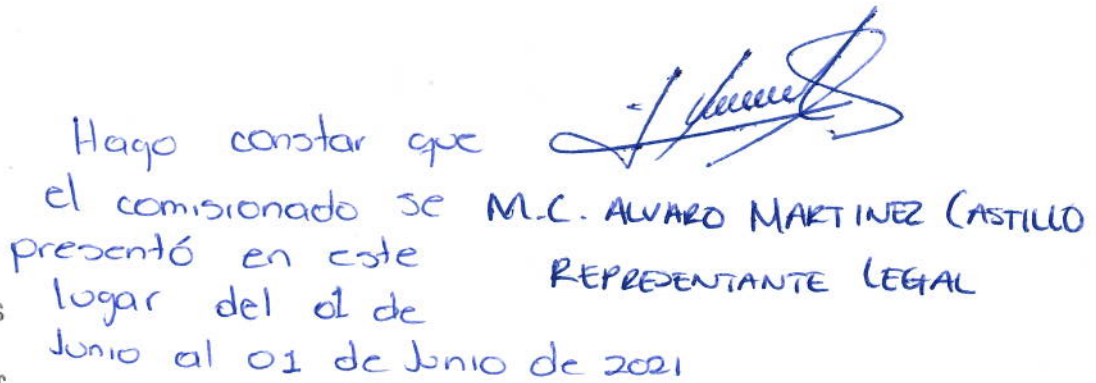 Hago constar que
el comisionado se
presentó en este
lugar del 01 de
Junio al 01 de Junio de 2021
M.C. ALVARO MARTINEZ CASTILLO
REPRESENTANTE LEGAL